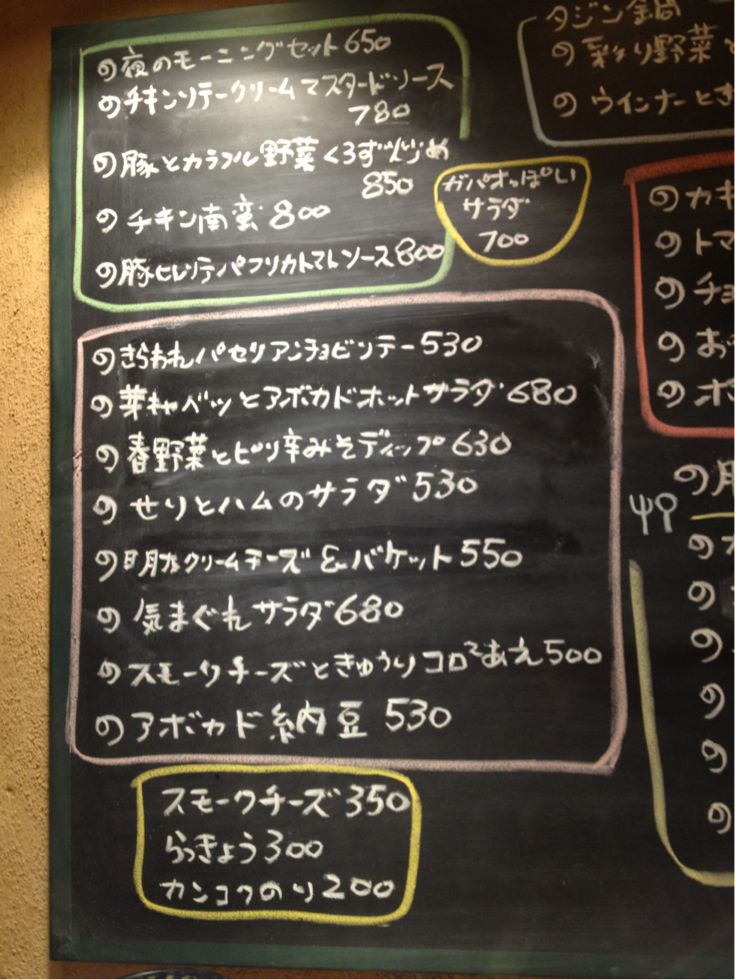 の夜のモーニングセット650
のチキンソテークリームマスタードソース
780
の豚とカラフル野菜くろず炒め
850
のチキン南蛮800
の豚ヒレソテパプリカトマトソース800
ガパオっぽい
サラダ
700
のきらわれパセリアンチョビソテー530
の芽キャベツとアボカドホットサラダ680
の春野菜とピリ辛みそディップ630
のせりとハムのサラダ530
の明太クリームチーズ&バケット550
の気まぐれサラダ680
のスモークチーズときゅうりコロコロあえ500
のアボカド納豆530
スモークチーズ350
らっきょう300
カンコクのり200
タジン鍋
の彩り野菜と
のウインナーとき
のカキ
のトマ
のチョ
のお
のポ
の
の
の
の
の
の
の